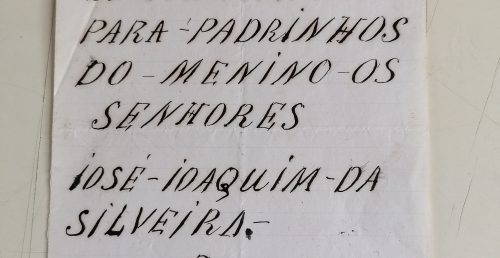 PARA-PADRINHOS
DO-MENINO-OS
SENHORES
JOSÉ-JOAQUIM-DA
SILVEIRA.-